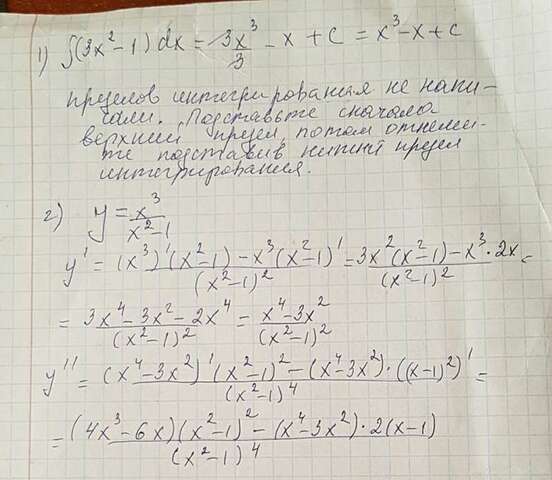 1) ∫(3x²-1)dx = 3x³/3 - x + c = x³-x+c
пределов интегрирования не напи-
сали. Подставьте сначала
верхний предел, потом отнеми-
те подставив нижний предел
интегрирования.
2) y = x³/(x²-1)
y' = ((x³)'(x²-1) - x³(x²-1)')/(x²-1)² = (3x²(x²-1) - x³·2x)/(x²-1)² =
= (3x⁴-3x²-2x⁴)/(x²-1)² = (x⁴-3x²)/(x²-1)²
y'' = ((x⁴-3x²)'(x²-1)² - (x⁴-3x²)·((x-1)²)')/(x²-1)⁴ =
= ((4x³-6x)(x²-1)² - (x⁴-3x²)·2(x-1))/(x²-1)⁴